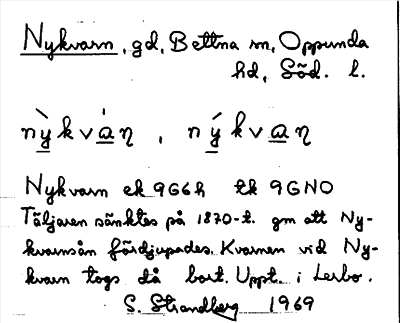 Nykvarn, gd, Bettna sn, Oppunda
hd, Söd. l.
ǹy̲kvà̲ɳ, ný̲kva̲ɳ
Nykvarn ek 9G6h tk 9GNO
Täljaren sänktes på 1870-t. gm att Ny-
kvarnsån fördjupades. Kvarnen vid Ny-
kvarn togs då bort. Uppt. i Lerbo.
S. Strandberg 1969